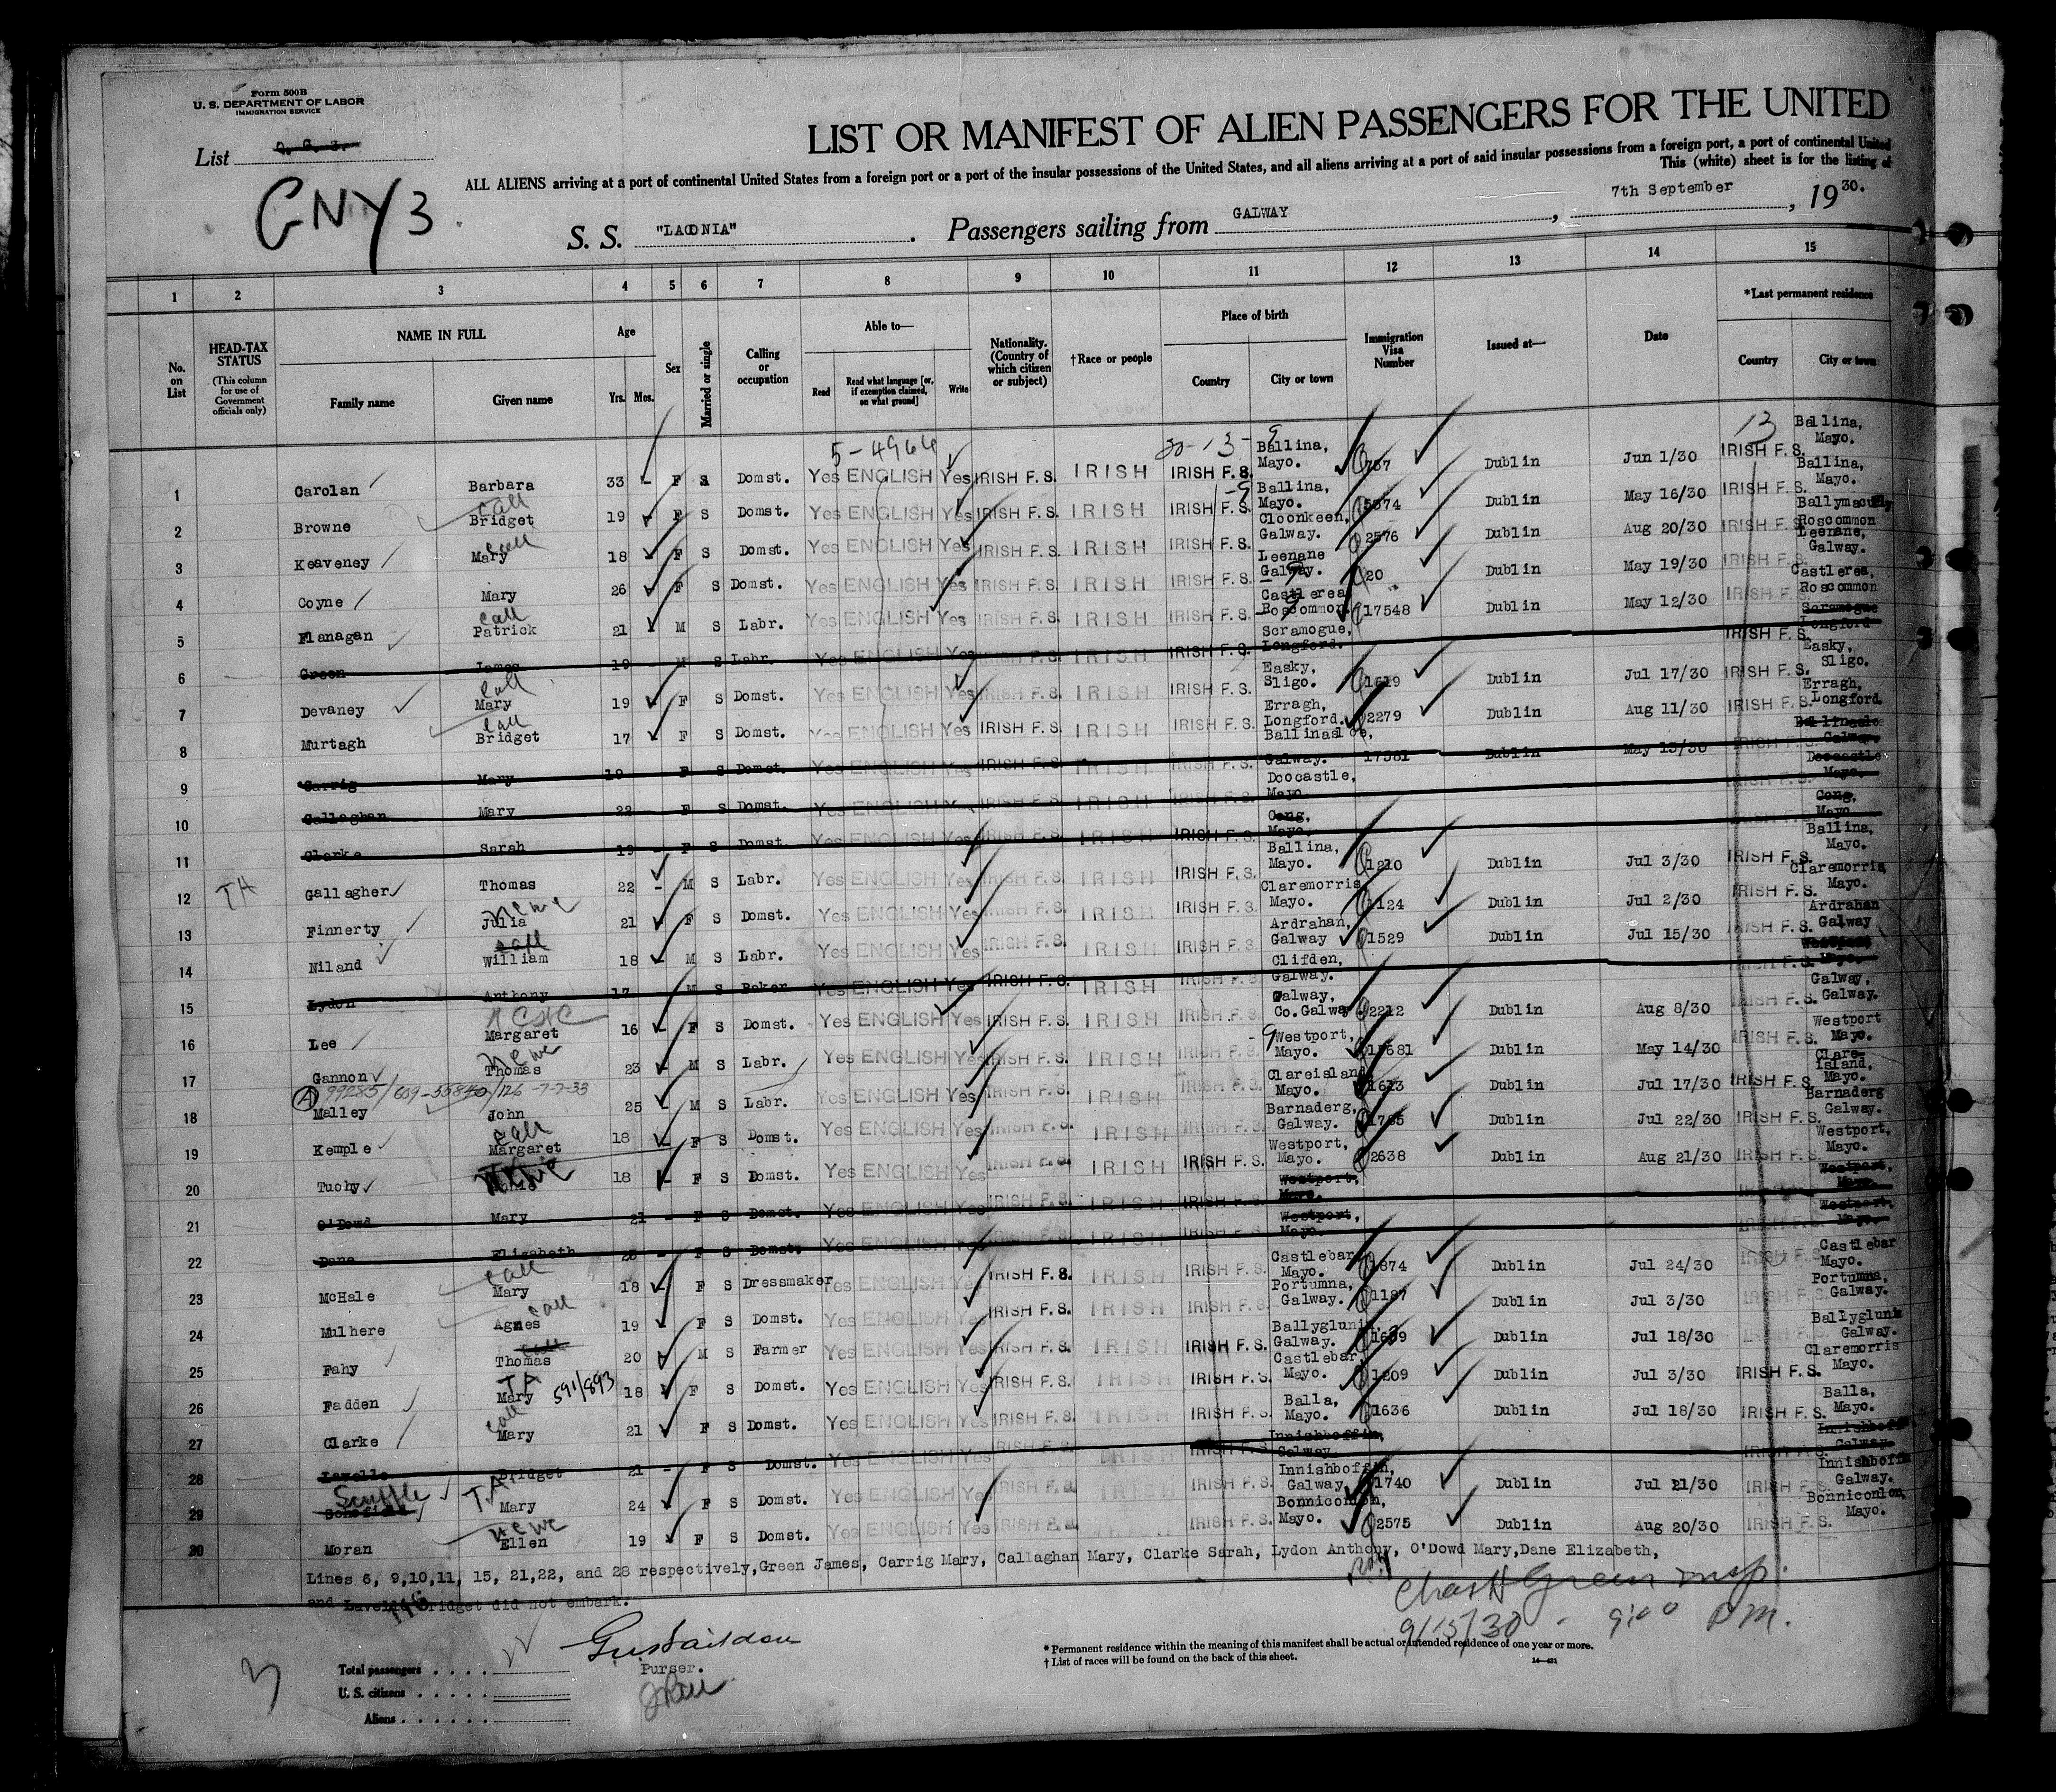 Form 500B
U. S. DEPARTMENT OF LABOR
IMMIGRATION SERVICE
List
GNY 3
LIST OR MANIFEST OF ALIEN PASSENGERS FOR THE UNITED
ALL ALIENS arriving at a port of continental United States from a foreign port or a port of the insular possessions of the United States, and all aliens arriving at a port of said insular possessions from a foreign port, a port of continental United
This (white) sheet is for the listing of
S. S. "LACONIA" . Passengers sailing from GALWAY , 7th September , 1930.
1 2 3 4 5 6 7 8 9 10 11 12 13 14 15
No. on List
HEAD-TAX STATUS
(This column for use of Government officials only)
NAME IN FULL
Family name Given name
Age
Yrs. Mos.
Sex
Married or single
Calling or occupation
Able to—
Read Read what language [or, if exemption claimed, on what ground] Write
Nationality. (Country of which citizen or subject)
†Race or people
Place of birth
Country City or town
Immigration Visa Number
Issued at—
Date
*Last permanent residence
Country City or town
5-4964
13
1 Carolan Barbara 33 - F S Domst. Yes ENGLISH Yes IRISH F.S. IRISH IRISH F.S. Ballina, Mayo. 757 Dublin Jun 1/30 IRISH F.S. Ballina, Mayo.
2 Browne Bridget call 19 - F S Domst. Yes ENGLISH Yes IRISH F.S. IRISH IRISH F.S. Ballina, Mayo. 5574 Dublin May 16/30 IRISH F.S. Ballina, Mayo.
3 Keaveney Mary call 18 - F S Domst. Yes ENGLISH Yes IRISH F.S. IRISH IRISH F.S. Cloonkeen, Galway. 2576 Dublin Aug 20/30 IRISH F.S. Roscommon
4 Coyne Mary 26 - F S Domst. Yes ENGLISH Yes IRISH F.S. IRISH IRISH F.S. Leenane Galway. 20 Dublin May 19/30 IRISH F.S. Leenane, Galway.
5 Flanagan Patrick call 21 - M S Labr. Yes ENGLISH Yes IRISH F.S. IRISH IRISH F.S. Castlerea, Roscommon 17548 Dublin May 12/30 IRISH F.S. Castlerea, Roscommon
6 Green James 19 - M S Labr. Yes ENGLISH Yes IRISH F.S. IRISH IRISH F.S. Scramogue, Longford. IRISH F.S. Scramogue Longford
7 Devaney Mary call 19 - F S Domst. Yes ENGLISH Yes IRISH F.S. IRISH IRISH F.S. Easky, Sligo. 1619 Dublin Jul 17/30 IRISH F.S. Easky, Sligo.
8 Murtagh Bridget call 17 - F S Domst. Yes ENGLISH Yes IRISH F.S. IRISH IRISH F.S. Erragh, Longford. 2279 Dublin Aug 11/30 IRISH F.S. Erragh, Longford.
9 Carrig Mary 19 F S Domst. Yes ENGLISH Yes IRISH F.S. IRISH IRISH F.S. Ballinasloe, Galway. 17581 Dublin May 13/30 IRISH F.S. Ballinasloe Galway.
10 Callaghan Mary 22 - F S Domst. Yes ENGLISH Yes IRISH F.S. IRISH IRISH F.S. Doocastle, Mayo. IRISH F.S. Doocastle Mayo.
11 Clarke Sarah 19 - F S Domst. Yes ENGLISH Yes IRISH F.S. IRISH IRISH F.S. Cong, Mayo. IRISH F.S. Cong, Mayo.
12 TA Gallagher Thomas 22 - M S Labr. Yes ENGLISH Yes IRISH F.S. IRISH IRISH F.S. Ballina, Mayo. 1210 Dublin Jul 3/30 IRISH F.S. Ballina, Mayo.
13 Finnerty Julia 21 - F S Domst. Yes ENGLISH Yes IRISH F.S. IRISH IRISH F.S. Claremorris Mayo. 1124 Dublin Jul 2/30 IRISH F.S. Claremorris, Mayo.
14 Niland William call 18 - M S Labr. Yes ENGLISH Yes IRISH F.S. IRISH IRISH F.S. Ardrahan, Galway 1529 Dublin Jul 15/30 IRISH F.S. Ardrahan Galway
15 Lydon Anthony 17 - M S Baker Yes ENGLISH Yes IRISH F.S. IRISH IRISH F.S. Clifden, Galway. IRISH F.S.
16 Lee Margaret 16 - F S Domst. Yes ENGLISH Yes IRISH F.S. IRISH IRISH F.S. Galway, Co. Galway 2212 Dublin Aug 8/30 IRISH F.S. Galway, Galway.
17 Gannon Thomas 23 - M S Labr. Yes ENGLISH Yes IRISH F.S. IRISH IRISH F.S. Westport, Mayo. 17681 Dublin May 14/30 IRISH F.S. Westport Mayo.
A 99285/659-55840/126 -7-7-33
18 Malley John 25 - M S Labr. Yes ENGLISH Yes IRISH F.S. IRISH IRISH F.S. Clareisland Mayo. 1613 Dublin Jul 17/30 IRISH F.S. Clare-island, Mayo.
19 Kemple Margaret call 18 - F S Domst. Yes ENGLISH Yes IRISH F.S. IRISH IRISH F.S. Barnaderg, Galway. 1765 Dublin Jul 22/30 IRISH F.S. Barnaderg Galway.
20 Tuohy 18 - F S Domst. Yes ENGLISH Yes IRISH F.S. IRISH IRISH F.S. Westport, Mayo. 2638 Dublin Aug 21/30 IRISH F.S. Westport, Mayo.
21 O'Dowd Mary 21 - F S Domst. Yes ENGLISH Yes IRISH F.S. IRISH IRISH F.S. Westport, Mayo. IRISH F.S. Westport, Mayo.
22 Dane Elizabeth - F S Domst. Yes ENGLISH Yes IRISH F.S. IRISH IRISH F.S. Westport, Mayo. IRISH F.S. Westport, Mayo.
23 McHale Mary call 18 - F S Dressmaker Yes ENGLISH Yes IRISH F.S. IRISH IRISH F.S. Castlebar Mayo. 1874 Dublin Jul 24/30 IRISH F.S. Castlebar Mayo.
24 Mulhere Agnes call 19 - F S Domst. Yes ENGLISH Yes IRISH F.S. IRISH IRISH F.S. Portumna, Galway. 1187 Dublin Jul 3/30 IRISH F.S. Portumna, Galway.
25 Fahy Thomas call 20 - M S Farmer Yes ENGLISH Yes IRISH F.S. IRISH IRISH F.S. Ballyglunin, Galway. 1639 Dublin Jul 18/30 IRISH F.S. Ballyglunin Galway.
26 Fadden Mary TA 591/893 18 - F S Domst. Yes ENGLISH Yes IRISH F.S. IRISH IRISH F.S. Castlebar Mayo. 1209 Dublin Jul 3/30 IRISH F.S. Claremorris Mayo.
27 Clarke Mary call 21 F S Domst. Yes ENGLISH Yes IRISH F.S. IRISH IRISH F.S. Balla, Mayo. 1636 Dublin Jul 18/30 IRISH F.S. Balla, Mayo.
28 Lavelle Bridget 21 - F S Domst. Yes ENGLISH Yes IRISH IRISH F.S. Innishboffin, Galway. IRISH F.S. Innishboffin Galway.
29 Scuffle Schofield T.A. Mary 24 - F S Domst. Yes ENGLISH Yes IRISH F.S. IRISH F.S. Innishboffin, Galway 1740 Dublin Jul 21/30 IRISH F.S. Innishboffin Galway.
30 Moran Ellen 19 - F S Domst. Yes ENGLISH Yes IRISH F.S. IRISH F.S. Bonniconlon, Mayo. 2575 Dublin Aug 20/30 IRISH F.S. Bonniconlon, Mayo.
Lines 6, 9,10,11, 15, 21,22, and 28 respectively,Green James, Carrig Mary, Callaghan Mary, Clarke Sarah, Lydon Anthony, O'Dowd Mary,Dane Elizabeth,
and Lavelle Bridget did not embark.
Chas H Green Insp.
9/15/30 - 9:00 P.M.
Purser.
3
Total passengers
U. S. citizens
Aliens
* Permanent residence within the meaning of this manifest shall be actual or intended residence of one year or more.
† List of races will be found on the back of this sheet.